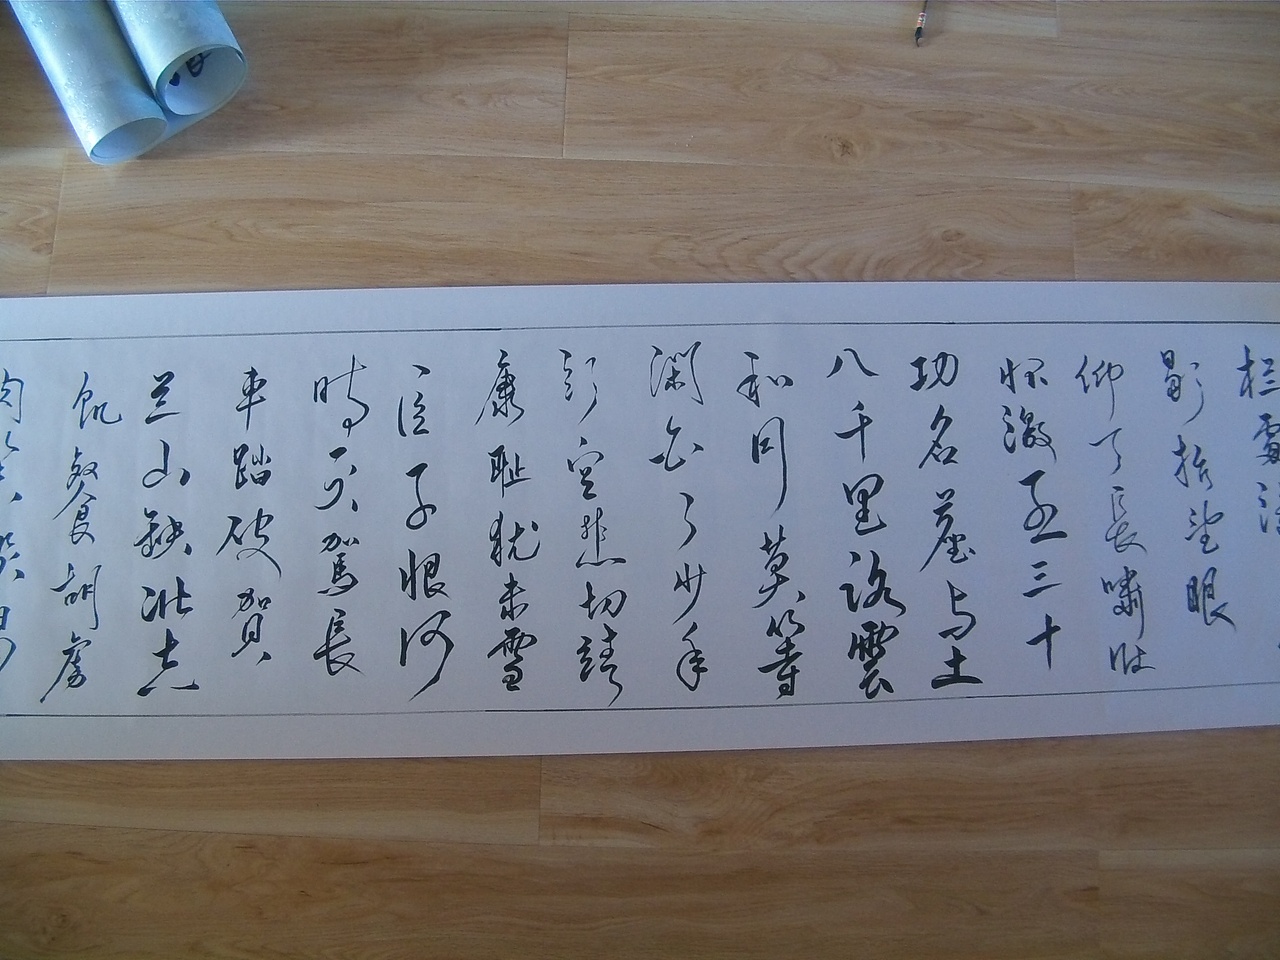 栏處
歇抬望眼
仰天長嘯壮
怀激烈三十
功名塵与土
八千里路雲
和月莫等
閑白了少年
头空悲切靖
康耻犹未雪
臣子恨何
時灭駕長
車踏破賀
兰山缺壮志
飢餐胡虜
肉笑